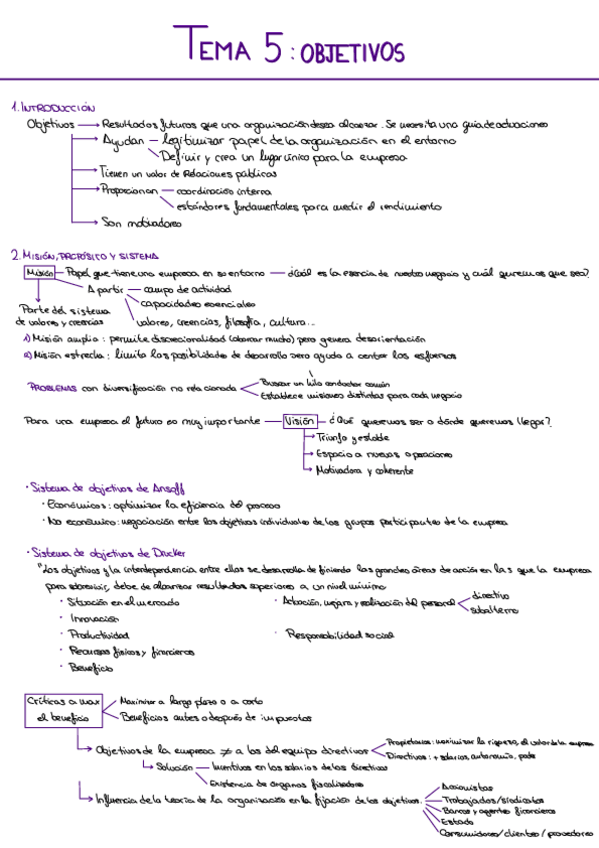 TEMA 5: OBJETIVOS
1. INTRODUCCIÓN
Objetivos → Resultados futuros que una organización desea alcanzar. Se necesita una guía de actuaciones
→ Ayudan — legitimizar papel de la organización en el entorno
Definir y crea un lugar único para la empresa
→ Tienen un valor de Relaciones públicas
→ Proporcionan — coordinación interna
estándares fundamentales para medir el rendimiento
→ Son motivadores
2. MISIÓN, PROPÓSITO Y SISTEMA
Misión — Papel que tiene una empresa en su entorno — ¿Cuál es la esencia de nuestro negocio y cuál queremos que sea?
A partir — campo de actividad
capacidades esenciales
valores, creencias, filosofía, cultura...
Parte del sistema
de valores y creencias
1) Misión amplia: permite discrecionalidad (abarcar mucho) pero genera desorientación
2) Misión estrecha: limita las posibilidades de desarrollo pero ayuda a centrar los esfuerzos
PROBLEMAS con diversificación no relacionada
Buscar un hilo conductor común
Establece misiones distintas para cada negocio
Para una empresa el futuro es muy importante — Visión — ¿Qué queremos ser o dónde queremos llegar?
→ Triunfo y estable
→ Espacio a nuevas operaciones
→ Motivadora y coherente
· Sistema de objetivos de Ansoff
· Económicos: optimizar la eficiencia del proceso
· No económico: negociación entre los objetivos individuales de los grupos participantes de la empresa
· Sistema de objetivos de Drucker
"Los objetivos y la interdependencia entre ellos se desarrolla definiendo las grandes áreas de acción en las que la empresa
para sobrevivir, debe de alcanzar resultados superiores a un nivel mínimo
· Situación en el mercado
· Innovación
· Productividad
· Recursos físicos y financieros
· Beneficio
· Actuación, mejora y realización del personal
directivo
subalterno
· Responsabilidad social
Críticas a max
el beneficio
Maximizar a largo plazo o a corto
Beneficios antes o después de impuestos
→ Objetivos de la empresa ≠ a los del equipo directivos
Propietarios: maximizar la riqueza, el valor de la empresa
Directivos: + salarios, autonomía, poder
→ Solución — Incentivos en los salarios de los directivos
Existencia de órganos fiscalizadores
→ Influencia de la teoría de la organización en la fijación de los objetivos.
Accionistas
Trabajadores/sindicatos
Bancos y agentes financieros
Estado
Consumidores/clientes/proveedores